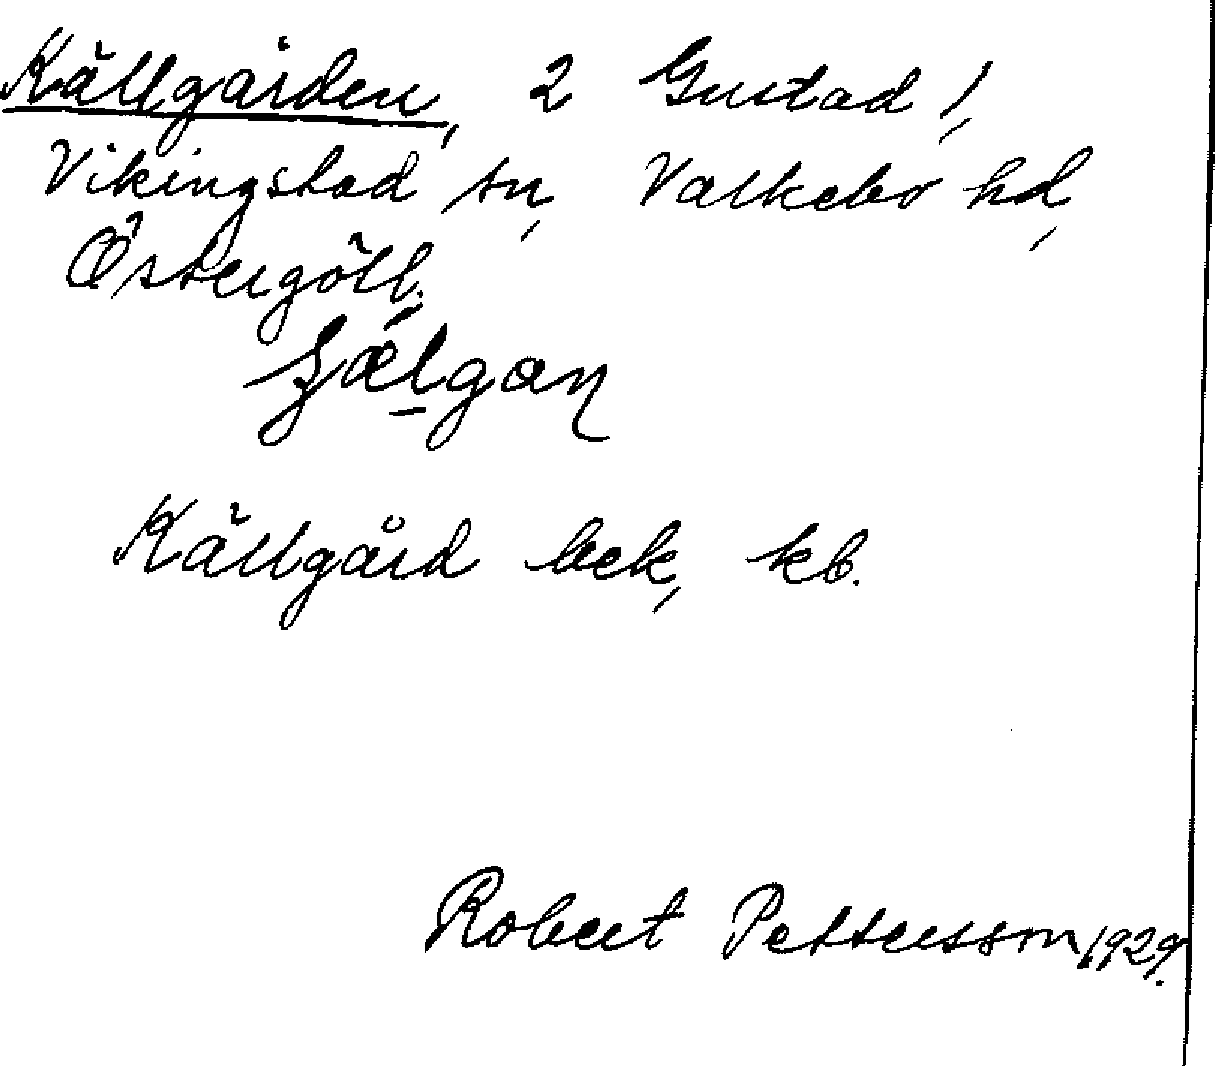 Källgården, 2 Gustad 1,
Vikingstad sn, Valkebo hd,
Östergötl.
Källgård bek, kb.
Robert Pettersson 1929.